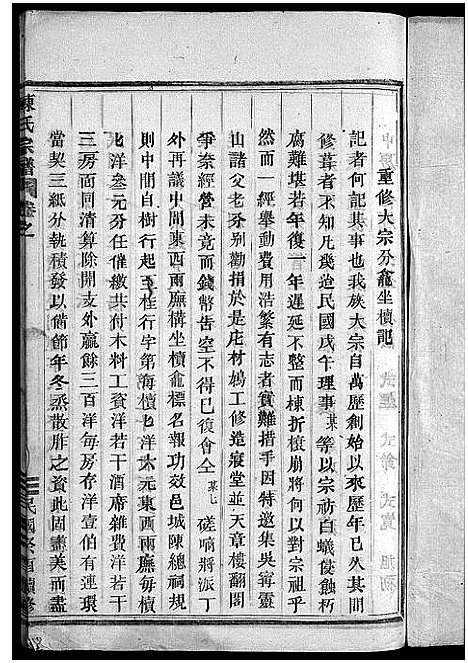 重修大宗分龕坐櫝記
記者何記其事也我族大宗自萬歷創始以來歷年已久其間
修葺者不知凡幾造民國戊午理事某等以宗祊白蟻侵蝕朽
腐難堪若年復一年遲延不整而棟折榱崩將何以對宗祖乎
然而一經舉動費用浩繁有志者實難措手因特邀集吳篝靈
山諸父老分別勸捐於是庄材鳩工修造寢堂並天章樓翻閣
爭奈經營未竟而錢幣告空不得已復會仝某七磋嘀將派丁
外再議中間東西兩廡構坐櫝龕標名報功效邑城陳總祠規
則中間自樹行起至桂行字第每櫝七洋六元東西兩廡每櫝
七洋叄元分任催繳共付木料工資洋若干酒席雜費洋若干
三房面同清算除開支外贏餘三百洋每房存洋壹伯有連環
當契三紙分執積發以備節年冬烝散胙之資此固盡美而盡
陳氏宗譜
卷之
民國癸酉續修